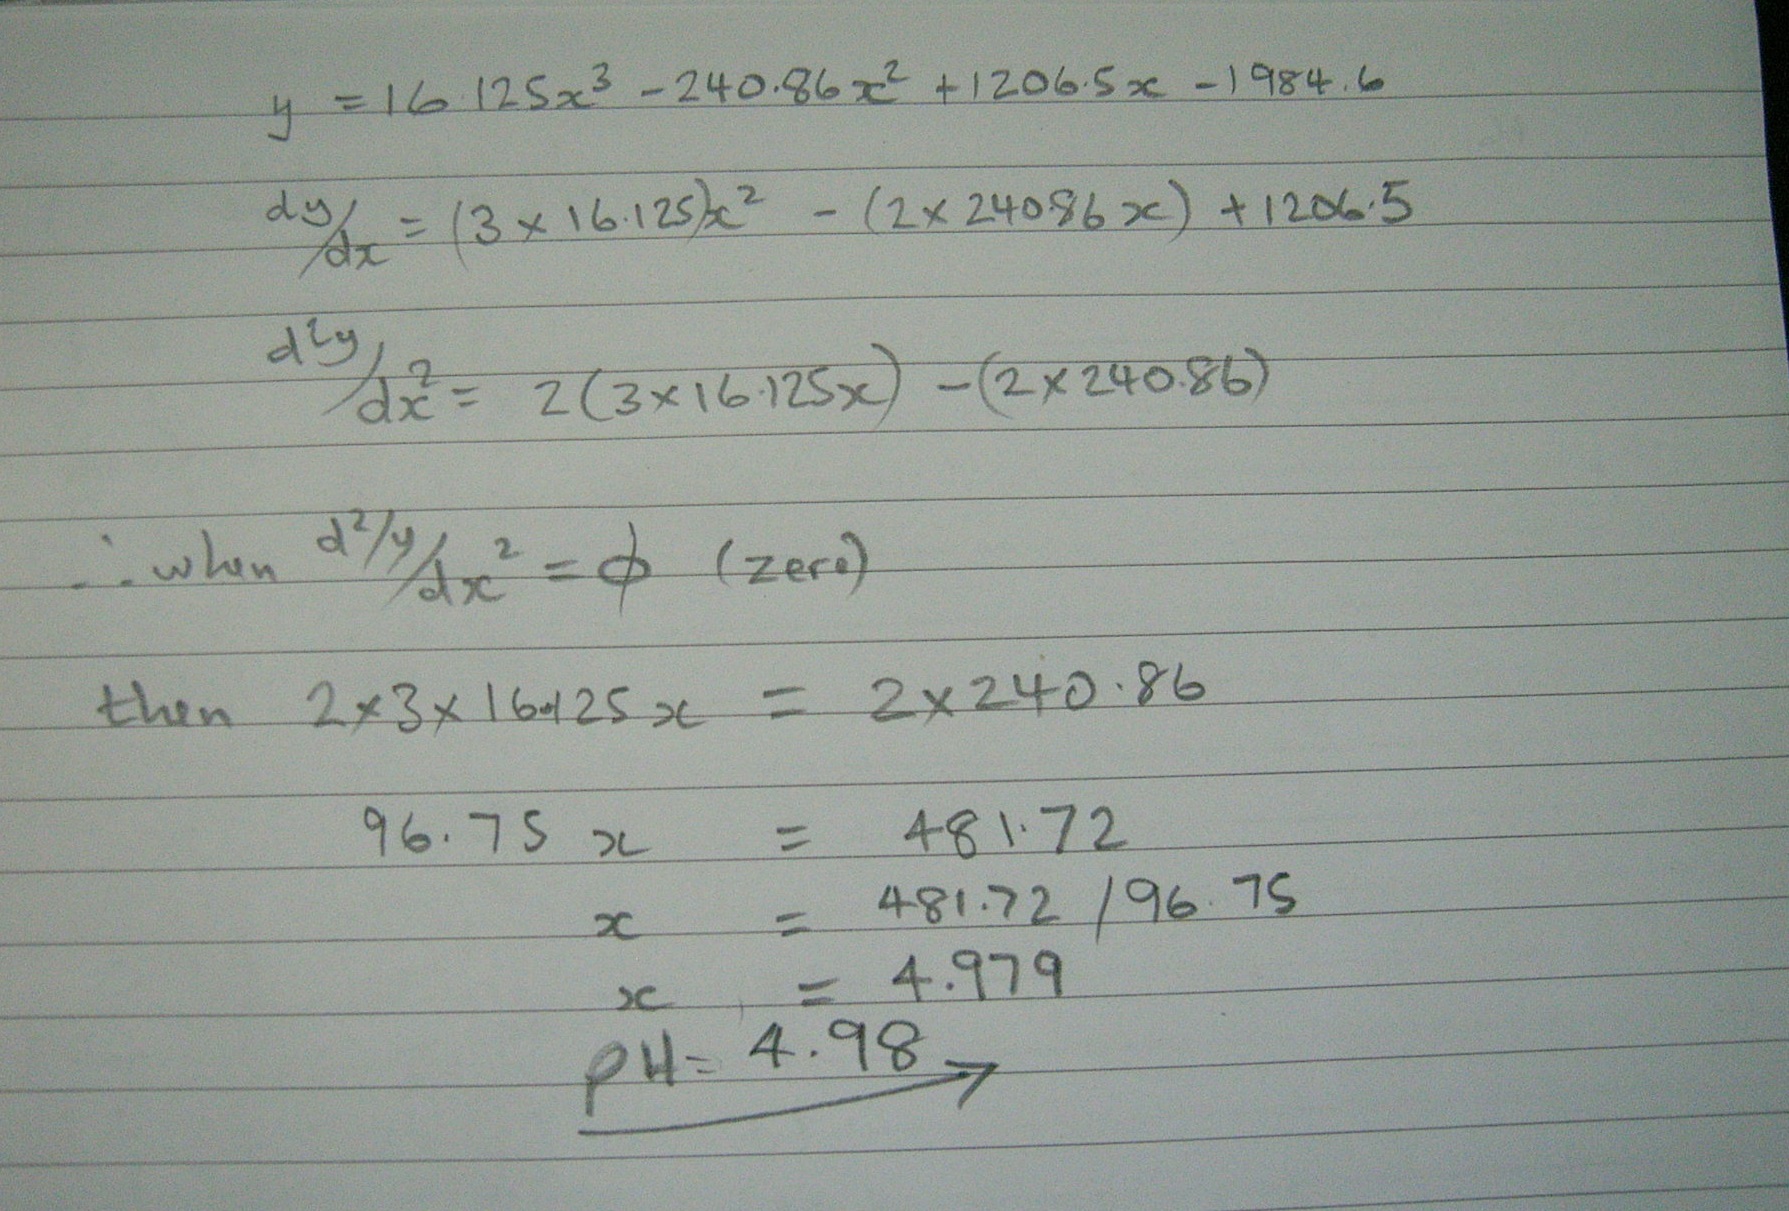 y = 16.125x³ - 240.86x² + 1206.5x - 1984.6
dy/dx = (3 × 16.125)x² - (2 × 240.86x) + 1206.5
d²y/dx² = 2(3×16.125x) - (2×240.86)
∴ when d²/y/dx² = ϕ (zero)
then 2×3×16.125x = 2×240.86
96.75x = 481.72
x = 481.72/96.75
x = 4.979
pH = 4.98